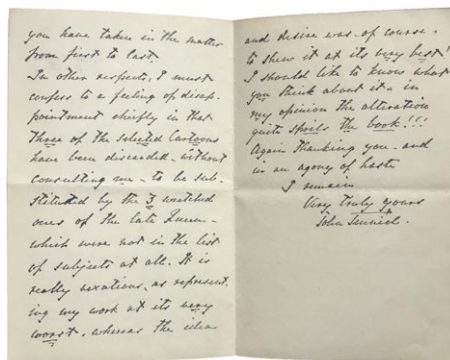 you have taken in the matter
from first to last.
In other respects, I must
confess to a feeling of disap-
pointment chiefly in that
three of the selected Cartoons
have been discarded - without
consulting me - to be sub-
stituted by the 3 wretched
ones of the late Queen -
which were not in the list
of subjects at all. It is
really vexatious, as represent-
ing my work at its very
worst, whereas the idea
and desire was, of course,
to shew it at its very best!
I should like to know what
you think about it - in
my opinion the alteration
quite spoils the book!!!
Again thanking you - and
in an agony of haste
I remain
Very truly yours
John Tenniel.